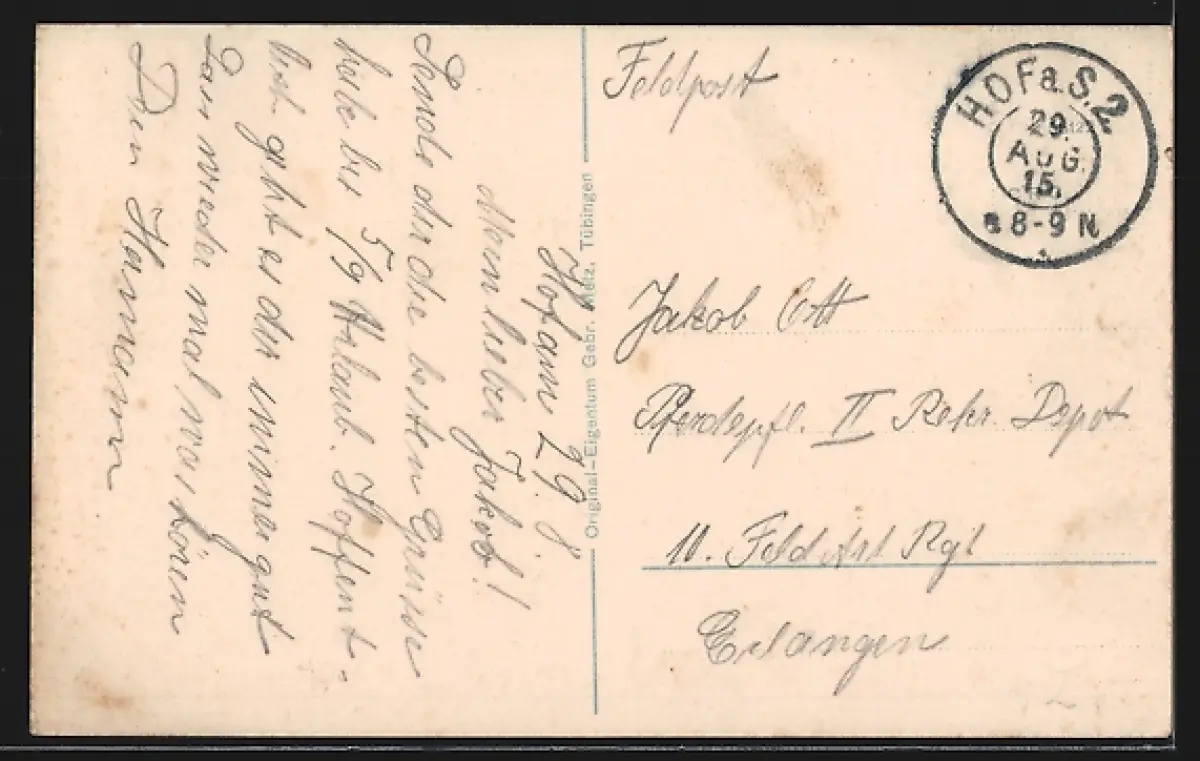 Hof am 29. 8.
Mein lieber Jakob!
Sende dir die besten Grüsse
habe bis 5/9 Urlaub. Hoffent-
lich geht es dir immer gut
Lass wieder mal was hören
Dein Hermann.
Original-Eigentum Gebr. Metz, Tübingen
Feldpost
HOF a. S. 2.
29.
AUG.
15.
8-9 N
Jakob Ott
Pferdepfl. II Rekr. Depot
10. Feld Art Rgt
Erlangen